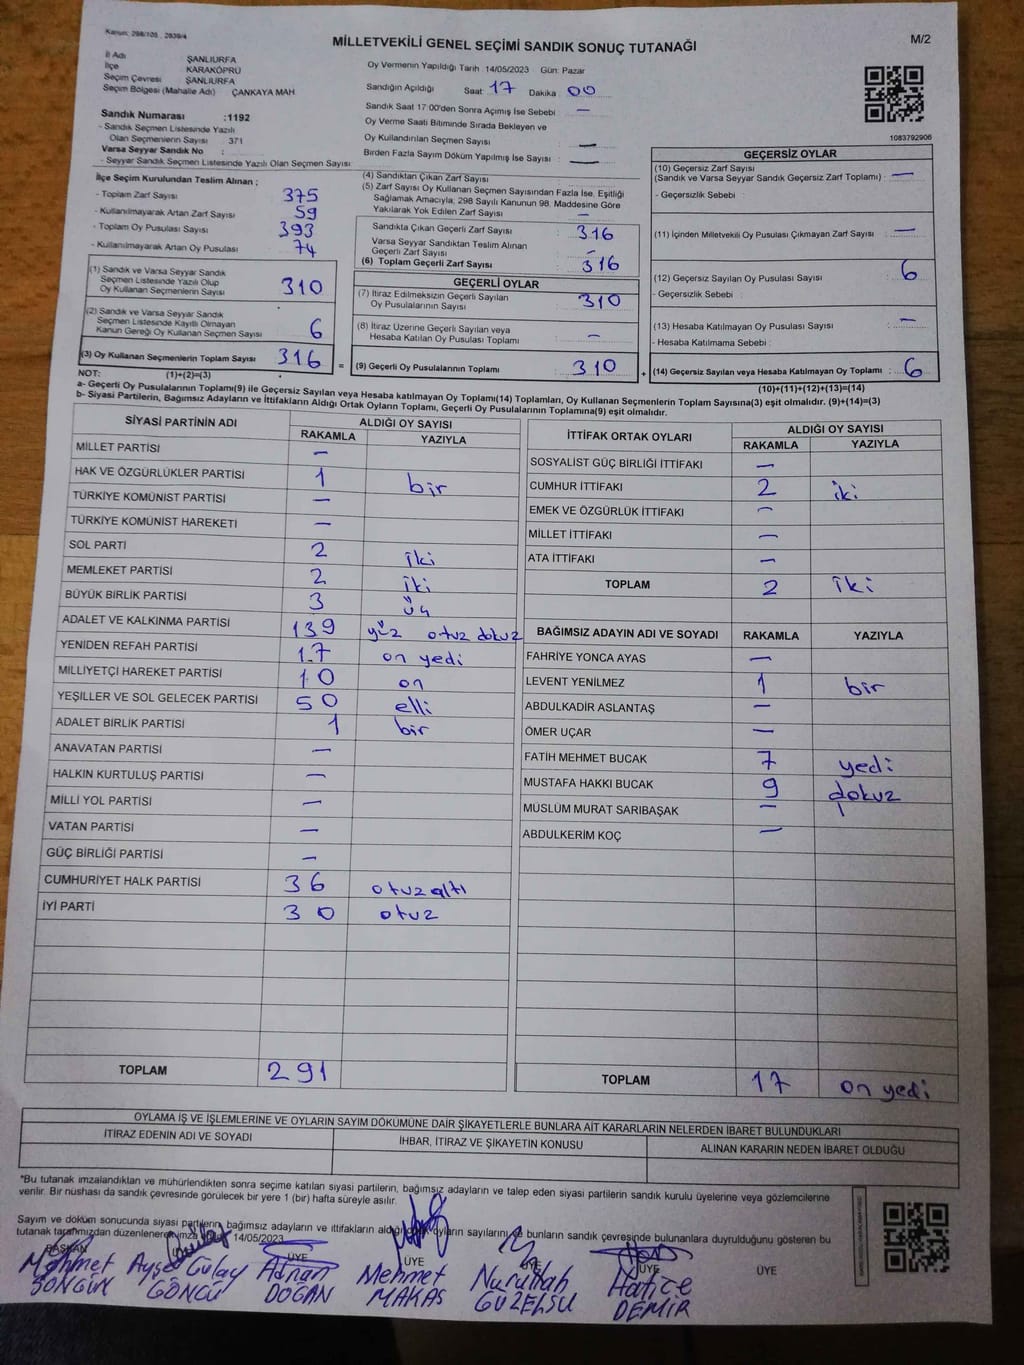 Kanun: 298/105 , 2839/4
M/2
MİLLETVEKİLİ GENEL SEÇİMİ SANDIK SONUÇ TUTANAĞI
İl Adı ŞANLIURFA
İlçe KARAKÖPRÜ
Seçim Çevresi ŞANLIURFA
Seçim Bölgesi (Mahalle Adı) ÇANKAYA MAH
Sandık Numarası :1192
- Sandık Seçmen Listesinde Yazılı
Olan Seçmenlerin Sayısı 371
Varsa Seyyar Sandık No :
- Seyyar Sandık Seçmen Listesinde Yazılı Olan Seçmen Sayısı:
Oy Vermenin Yapıldığı Tarih 14/05/2023 Gün: Pazar
Sandığın Açıldığı Saat 17 Dakika 00
Sandık Saat 17:00'den Sonra Açımış İse Sebebi —
Oy Verme Saati Bitiminde Sırada Bekleyen ve
Oy Kullandırılan Seçmen Sayısı : —
Birden Fazla Sayım Döküm Yapılmış İse Sayısı : —
1083792906
İlçe Seçim Kurulundan Teslim Alınan ;
- Toplam Zarf Sayısı 375
- Kullanılmayarak Artan Zarf Sayısı 59
- Toplam Oy Pusulası Sayısı 393
- Kullanılmayarak Artan Oy Pusulası 74
(1) Sandık ve Varsa Seyyar Sandık
Seçmen Listesinde Yazılı Olup
Oy Kullanan Seçmenlerin Sayısı 310
(2) Sandık ve Varsa Seyyar Sandık
Seçmen Listesinde Kayıtlı Olmayan
Kanun Gereği Oy Kullanan Seçmen Sayısı 6
(3) Oy Kullanan Seçmenlerin Toplam Sayısı 316
(4) Sandıktan Çıkan Zarf Sayısı
(5) Zarf Sayısı Oy Kullanan Seçmen Sayısından Fazla İse, Eşitliği
Sağlamak Amacıyla; 298 Sayılı Kanunun 98. Maddesine Göre
Yakılarak Yok Edilen Zarf Sayısı —
Sandıkta Çıkan Geçerli Zarf Sayısı 316
Varsa Seyyar Sandıktan Teslim Alınan
Geçerli Zarf Sayısı —
(6) Toplam Geçerli Zarf Sayısı : 316
GEÇERLİ OYLAR
(7) İtiraz Edilmeksizin Geçerli Sayılan
Oy Pusulalarının Sayısı : 310
(8) İtiraz Üzerine Geçerli Sayılan veya
Hesaba Katılan Oy Pusulası Toplamı : —
= (9) Geçerli Oy Pusulalarının Toplamı : 310
GEÇERSİZ OYLAR
(10) Geçersiz Zarf Sayısı
(Sandık ve Varsa Seyyar Sandık Geçersiz Zarf Toplamı) : —
- Geçersizlik Sebebi :
(11) İçinden Milletvekili Oy Pusulası Çıkmayan Zarf Sayısı : —
(12) Geçersiz Sayılan Oy Pusulası Sayısı : 6
- Geçersizlik Sebebi :
(13) Hesaba Katılmayan Oy Pusulası Sayısı : —
- Hesaba Katılmama Sebebi :
+ (14) Geçersiz Sayılan veya Hesaba Katılmayan Oy Toplamı : 6
NOT: (1)+(2)=(3)
(10)+(11)+(12)+(13)=(14)
a- Geçerli Oy Pusulalarının Toplamı(9) ile Geçersiz Sayılan veya Hesaba katılmayan Oy Toplamı(14) Toplamları, Oy Kullanan Seçmenlerin Toplam Sayısına(3) eşit olmalıdır. (9)+(14)=(3)
b- Siyasi Partilerin, Bağımsız Adayların ve İttifakların Aldığı Ortak Oyların Toplamı, Geçerli Oy Pusulalarının Toplamına(9) eşit olmalıdır.
SİYASİ PARTİNİN ADI ALDIĞI OY SAYISI
RAKAMLA YAZIYLA
MİLLET PARTİSİ —
HAK VE ÖZGÜRLÜKLER PARTİSİ 1 bir
TÜRKİYE KOMÜNİST PARTİSİ —
TÜRKİYE KOMÜNİST HAREKETİ —
SOL PARTİ 2 iki
MEMLEKET PARTİSİ 2 iki
BÜYÜK BİRLİK PARTİSİ 3 üç
ADALET VE KALKINMA PARTİSİ 139 yüz otuz dokuz
YENİDEN REFAH PARTİSİ 17 on yedi
MİLLİYETÇİ HAREKET PARTİSİ 10 on
YEŞİLLER VE SOL GELECEK PARTİSİ 50 elli
ADALET BİRLİK PARTİSİ 1 bir
ANAVATAN PARTİSİ —
HALKIN KURTULUŞ PARTİSİ —
MİLLİ YOL PARTİSİ —
VATAN PARTİSİ —
GÜÇ BİRLİĞİ PARTİSİ —
CUMHURİYET HALK PARTİSİ 36 otuz altı
İYİ PARTİ 30 otuz
TOPLAM 291
İTTİFAK ORTAK OYLARI ALDIĞI OY SAYISI
RAKAMLA YAZIYLA
SOSYALİST GÜÇ BİRLİĞİ İTTİFAKI —
CUMHUR İTTİFAKI 2 iki
EMEK VE ÖZGÜRLÜK İTTİFAKI —
MİLLET İTTİFAKI —
ATA İTTİFAKI —
TOPLAM 2 iki
BAĞIMSIZ ADAYIN ADI VE SOYADI RAKAMLA YAZIYLA
FAHRİYE YONCA AYAS —
LEVENT YENİLMEZ 1 bir
ABDULKADİR ASLANTAŞ —
ÖMER UÇAR —
FATİH MEHMET BUCAK 7 yedi
MUSTAFA HAKKI BUCAK 9 dokuz
MÜSLÜM MURAT SARIBAŞAK —
ABDULKERİM KOÇ —
TOPLAM 17 on yedi
OYLAMA İŞ VE İŞLEMLERİNE VE OYLARIN SAYIM DÖKÜMÜNE DAİR ŞİKAYETLERLE BUNLARA AİT KARARLARIN NELERDEN İBARET BULUNDUKLARI
İTİRAZ EDENİN ADI VE SOYADI İHBAR, İTİRAZ VE ŞİKAYETİN KONUSU ALINAN KARARIN NEDEN İBARET OLDUĞU
*Bu tutanak imzalandıktan ve mühürlendikten sonra seçime katılan siyasi partilerin, bağımsız adayların ve talep eden siyasi partilerin sandık kurulu üyelerine veya gözlemcilerine
verilir. Bir nüshası da sandık çevresinde görülecek bir yere 1 (bir) hafta süreyle asılır.
Sayım ve döküm sonucunda siyasi partilerin, bağımsız adayların ve ittifakların aldığı oyların sayılarını ve bunların sandık çevresinde bulunanlara duyrulduğunu gösteren bu
tutanak tarafımızdan düzenlenerek imza 14/05/2023
BAŞKAN ÜYE ÜYE ÜYE ÜYE ÜYE
Mehmet SONGÜN
Ayşe Gülay GÖNCÜ
Adnan DOĞAN
Mehmet MAKAS
Nurullah GÜZELSU
Hatice DEMİR